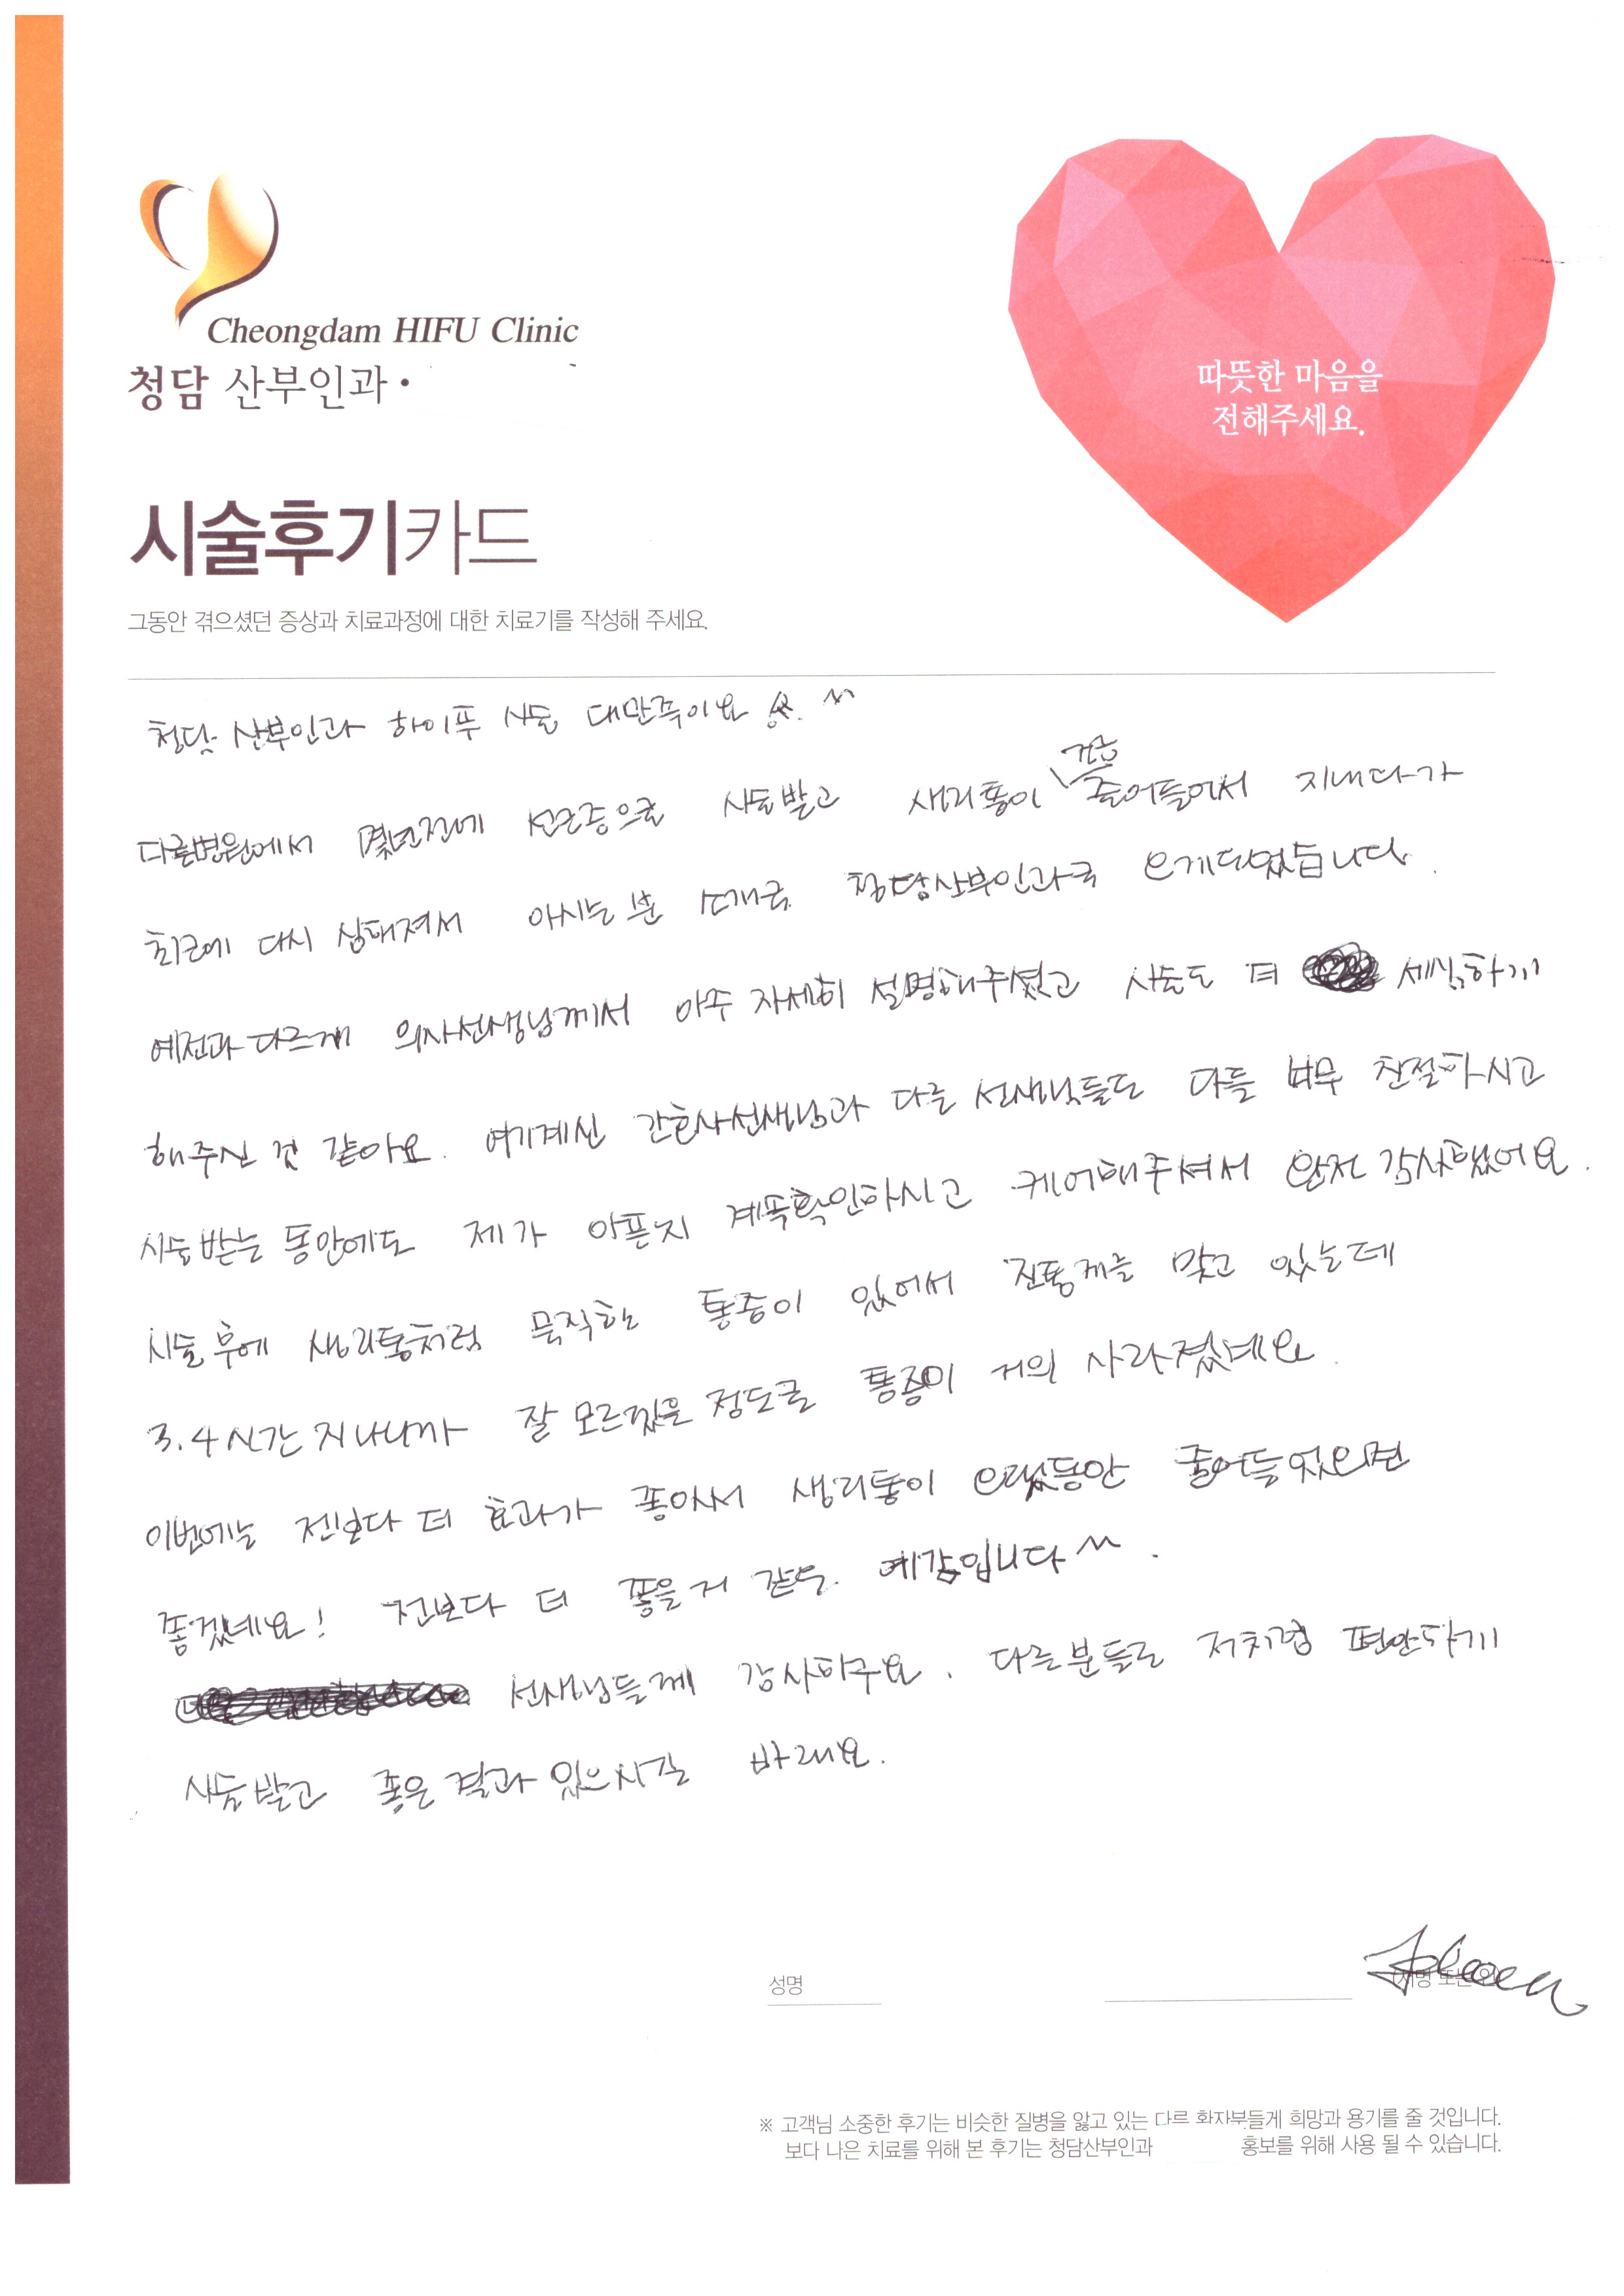 Cheongdam HIFU Clinic
청담 산부인과
따뜻한 마음을
전해주세요.
시술후기카드
그동안 겪으셨던 증상과 치료과정에 대한 치료기를 작성해 주세요.
청담 산부인과 하이푸 시술 대만족이요 ^^
다른병원에서 몇년전에 선근증으로 시술받고 생리통이 줄어들어서 지내다가
최근에 다시 심해져서 아시는 분 소개로 청담산부인과로 오게되었습니다.
예전과 다르게 의사선생님께서 아주 자세히 설명해주셨고 시술도 더 세심하게
해주신 것 같아요. 여기계신 간호사선생님과 다른 선생님들도 다들 너무 친절하시고
시술 받는 동안에도 제가 아픈지 계속확인하시고 케어해주셔서 완전 감사했어요.
시술 후에 생리통처럼 묵직한 통증이 있어서 진통제를 맞고 있는데
3.4시간 지나니까 잘 모르겠을 정도로 통증이 거의 사라졌네요.
이번에는 전보다 더 효과가 좋아서 생리통이 오랫동안 줄어들었으면
좋겠네요! 전보다 더 좋을거 같은 예감입니다 ^^.
선생님들께 감사하구요. 다른분들도 저처럼 편안하게
시술받고 좋은 결과 있으시길 바래요.
성명
※ 고객님 소중한 후기는 비슷한 질병을 앓고 있는 다른 환자분들게 희망과 용기를 줄 것입니다.
보다 나은 치료를 위해 본 후기는 청담산부인과 홍보를 위해 사용 될 수 있습니다.